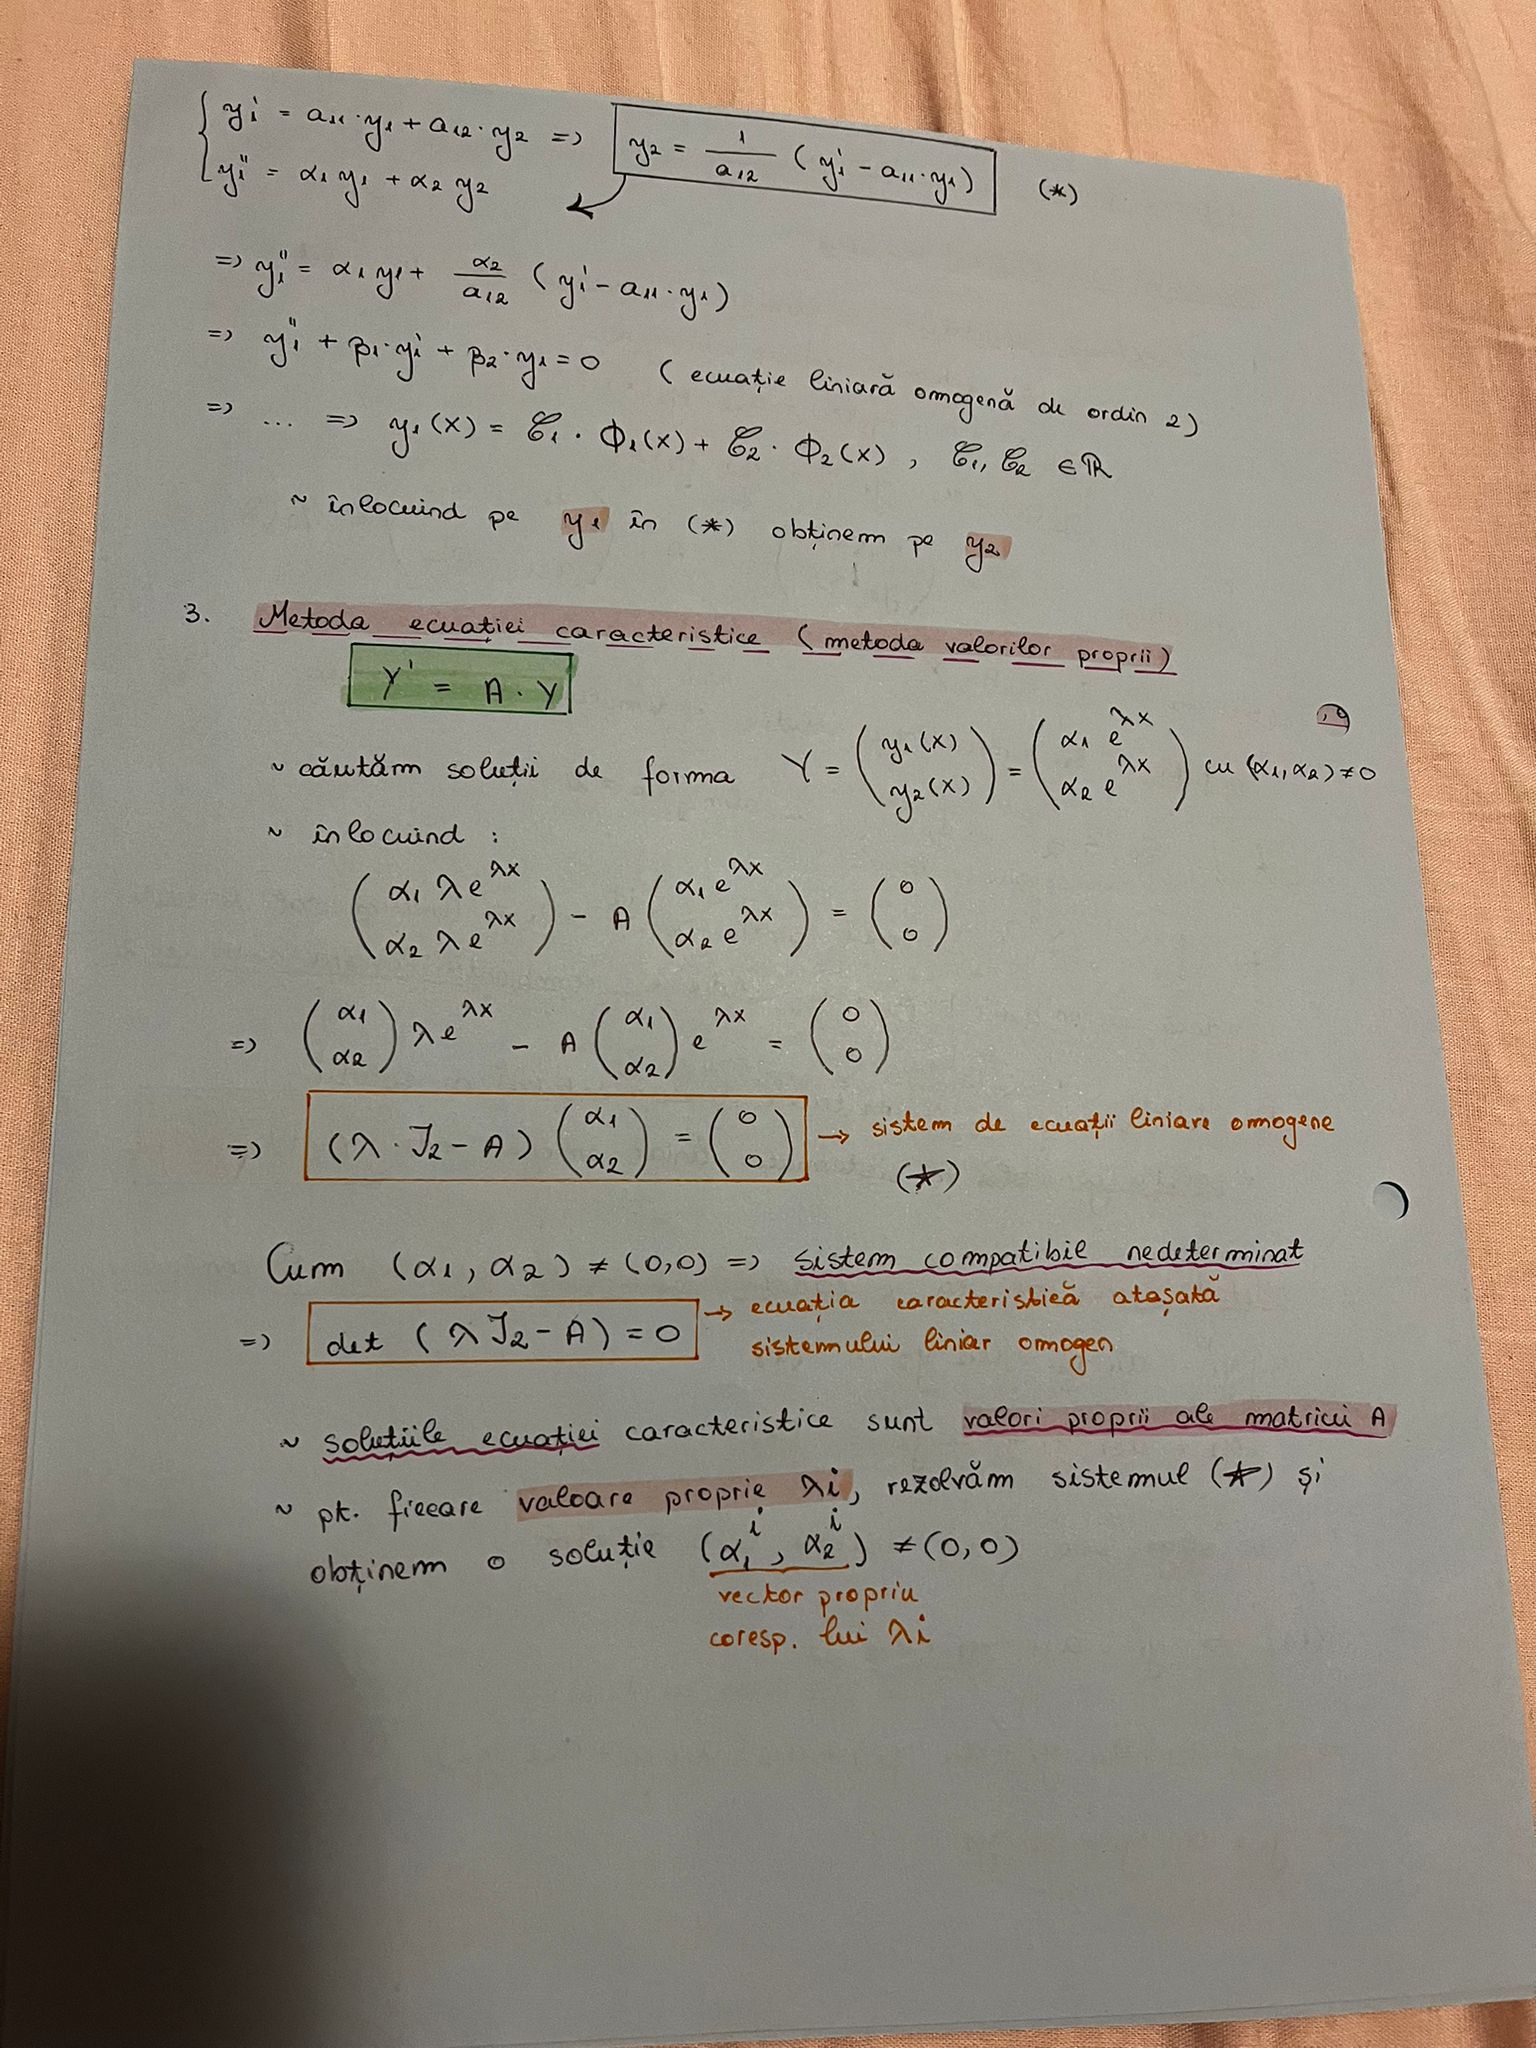 { y₁' = a₁₁·y₁ + a₁₂·y₂ => y₂ = 1/a₁₂ (y₁' - a₁₁·y₁) (*)
y₁'' = α₁ y₁ + α₂ y₂
=> y₁'' = α₁ y₁ + α₂/a₁₂ (y₁' - a₁₁·y₁)
=> y₁'' + β₁·y₁' + β₂·y₁ = 0 (ecuație liniară omogenă de ordin 2)
=> ... => y₁(x) = C₁ · Φ₁(x) + C₂ · Φ₂(x), C₁, C₂ ∈ ℝ
~ înlocuind pe y₁ în (*) obținem pe y₂
3. Metoda ecuației caracteristice (metoda valorilor proprii)
Y' = A · Y
~ căutăm soluții de forma Y = (y₁(x) y₂(x)) = (α₁ e^λx α₂ e^λx) cu (α₁, α₂) ≠ 0
~ înlocuind :
(α₁ λ e^λx α₂ λ e^λx) - A (α₁ e^λx α₂ e^λx) = (0 0)
=> (α₁ α₂) λ e^λx - A (α₁ α₂) e^λx = (0 0)
=> (λ · I₂ - A) (α₁ α₂) = (0 0) → sistem de ecuații liniare omogene
(★)
Cum (α₁, α₂) ≠ (0,0) => sistem compatibil nedeterminat
=> det (λ I₂ - A) = 0 → ecuația caracteristică atașată
sistemului liniar omogen
~ soluțiile ecuației caracteristice sunt valori proprii ale matricii A
~ pt. fiecare valoare proprie λi, rezolvăm sistemul (★) și
obținem o soluție (α₁ⁱ, α₂ⁱ) ≠ (0,0)
vector propriu
coresp. lui λi